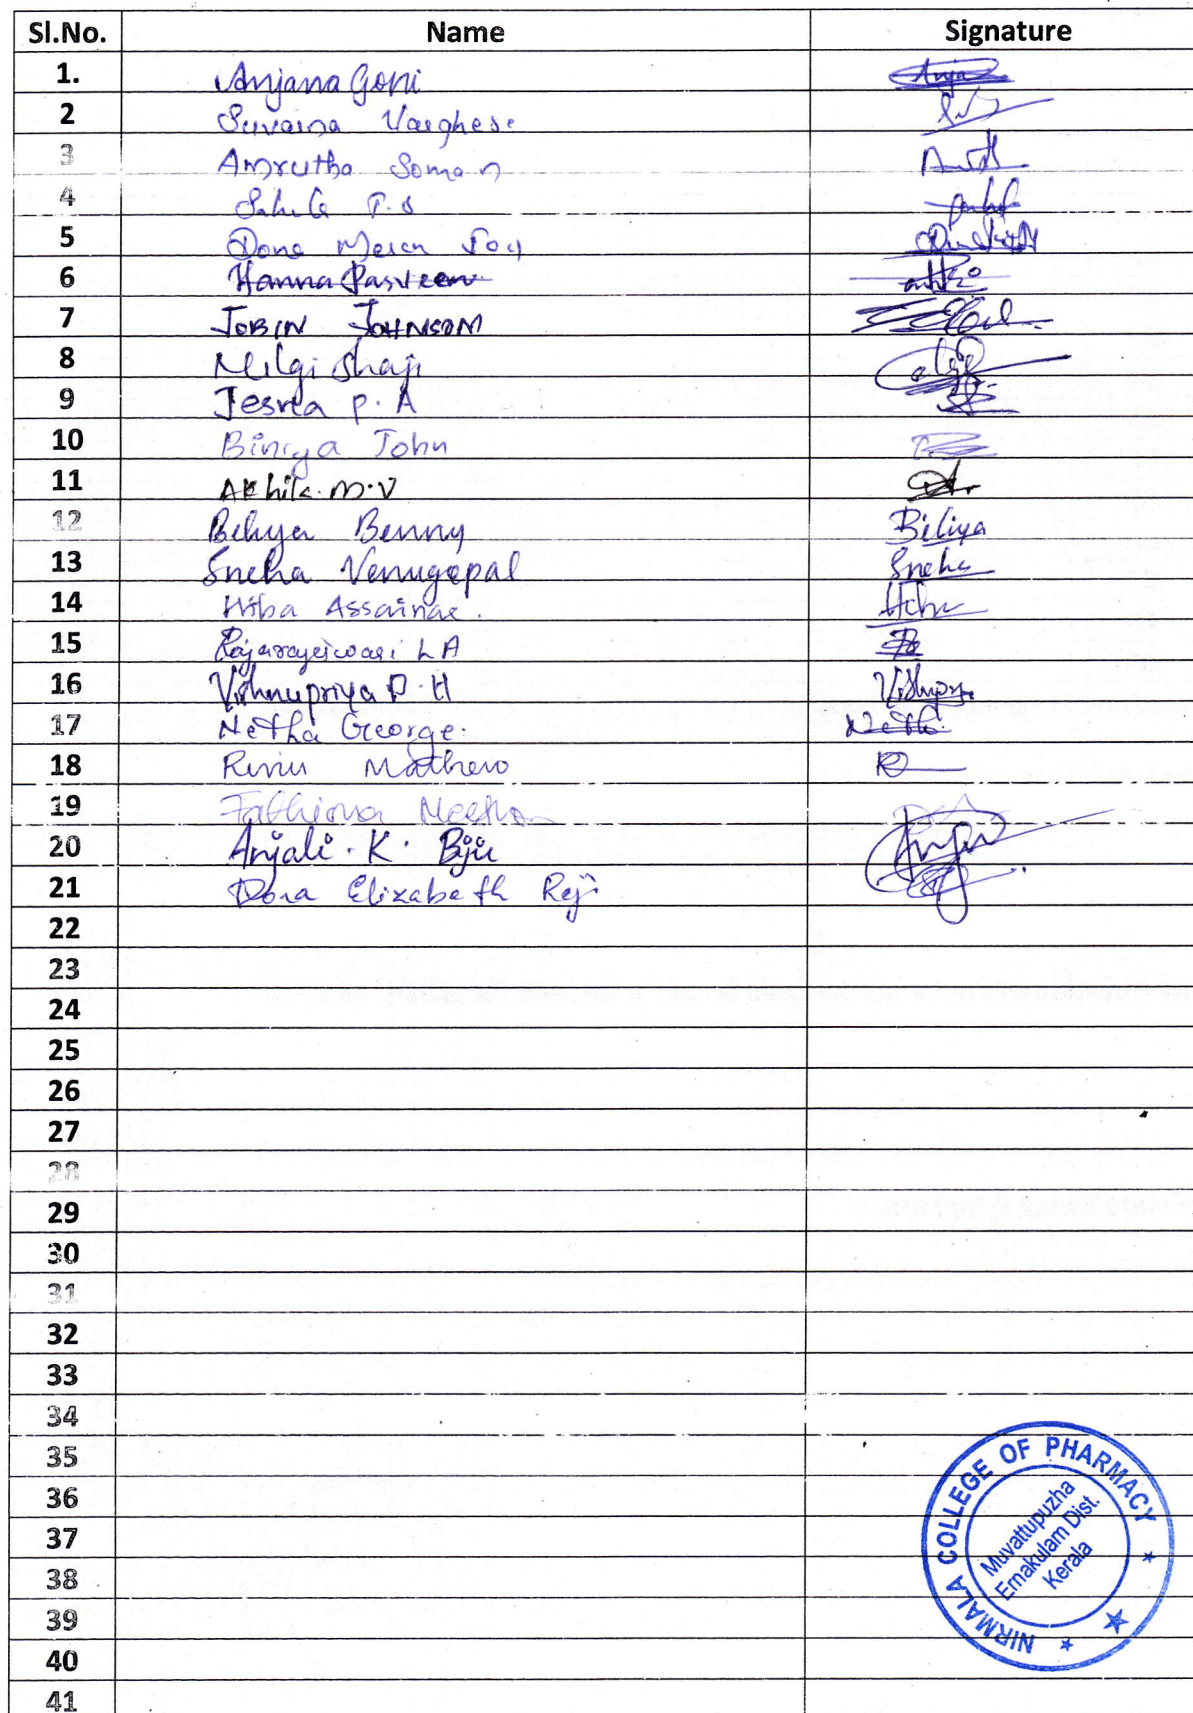 Sl.No. Name Signature
1. Anjana Goni Anja
2 Suvarna Varghese
3 Amrutha Soman
4 P.S
5 Dona Meren Joy
6 Hanna Parveen
7 JOBIN JOHNSON
8 Nilgi Shaji
9 Jesna P. A
10 Biniya John
11 Akhila. M. V
12 Beliya Benny Biliya
13 Sneha Venugopal Sneha
14 Hiba Assainar. Hiba
15 Rajarajeswari L A
16 Vishnupriya P. H Vishnupriya
17 Netha George. Netha
18 Rinu Mathew
19 Fathima
20 Anjali. K. Biju
21 Dona Elizabeth Reji
22
23
24
25
26
27
28
29
30
31
32
33
34
35
36
37
38
39
40
41
NIRMALA COLLEGE OF PHARMACY
Muvattupuzha
Ernakulam Dist.
Kerala